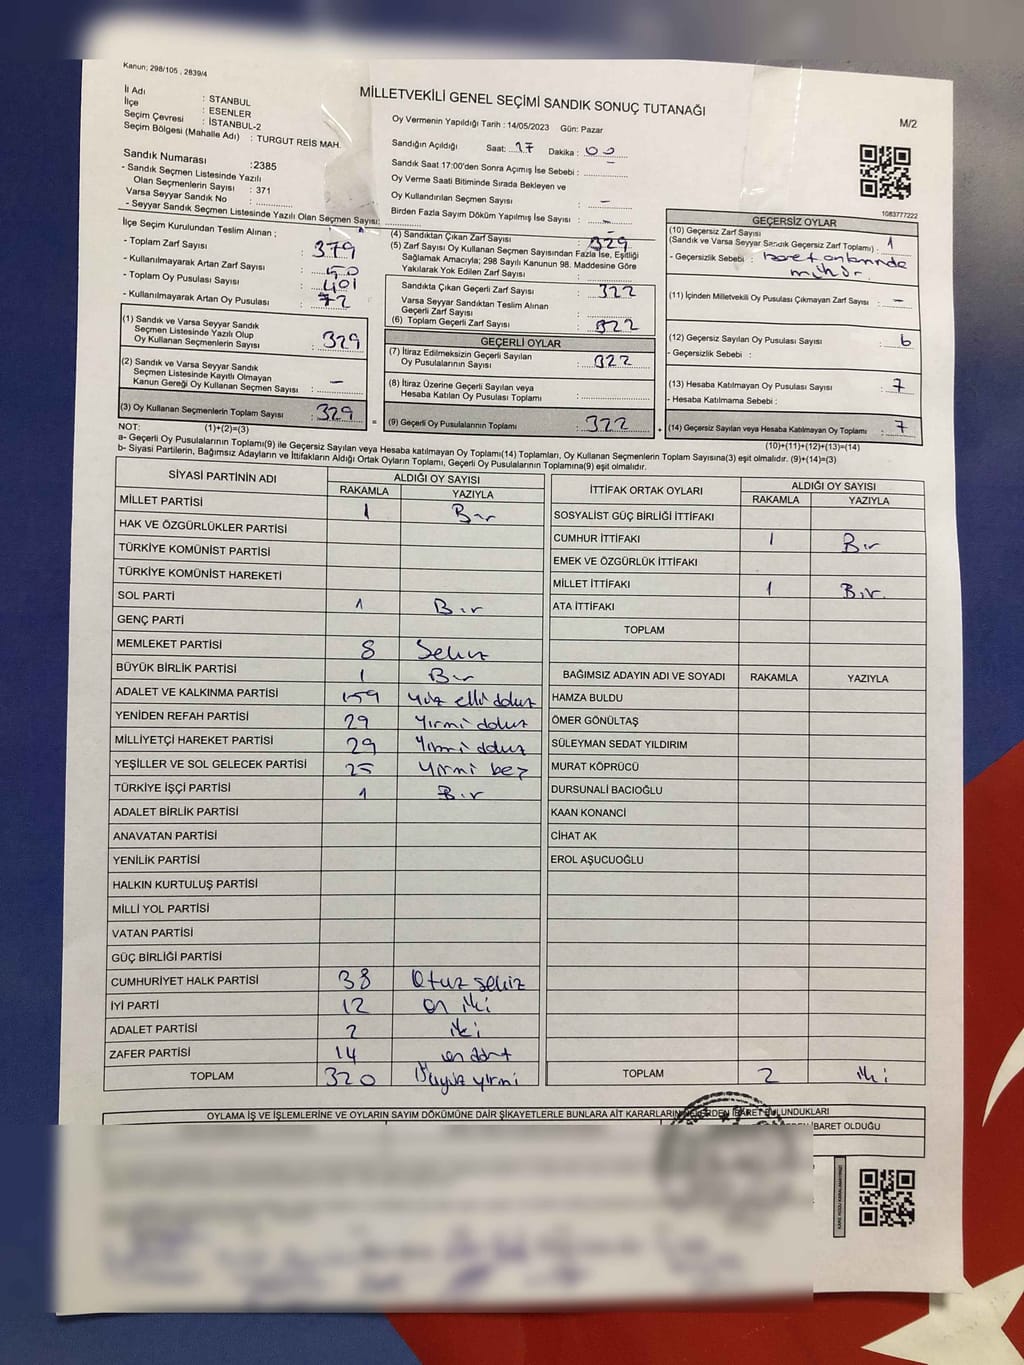 Kanun; 298/105 , 2839/4
MİLLETVEKİLİ GENEL SEÇİMİ SANDIK SONUÇ TUTANAĞI
M/2
İl Adı : STANBUL
İlçe : ESENLER
Seçim Çevresi : İSTANBUL-2
Seçim Bölgesi (Mahalle Adı) : TURGUT REİS MAH.
Sandık Numarası :2385
- Sandık Seçmen Listesinde Yazılı
Olan Seçmenlerin Sayısı : 371
Varsa Seyyar Sandık No :
- Seyyar Sandık Seçmen Listesinde Yazılı Olan Seçmen Sayısı:
Oy Vermenin Yapıldığı Tarih : 14/05/2023 Gün: Pazar
Sandığın Açıldığı Saat: 17 Dakika : 00
Sandık Saat 17:00'den Sonra Açımış İse Sebebi : –
Oy Verme Saati Bitiminde Sırada Bekleyen ve
Oy Kullandırılan Seçmen Sayısı : –
Birden Fazla Sayım Döküm Yapılmış İse Sayısı : –
1083777222
İlçe Seçim Kurulundan Teslim Alınan ;
- Toplam Zarf Sayısı : 379
- Kullanılmayarak Artan Zarf Sayısı : 50
- Toplam Oy Pusulası Sayısı : 401
- Kullanılmayarak Artan Oy Pusulası : 72
(1) Sandık ve Varsa Seyyar Sandık
Seçmen Listesinde Yazılı Olup
Oy Kullanan Seçmenlerin Sayısı : 329
(2) Sandık ve Varsa Seyyar Sandık
Seçmen Listesinde Kayıtlı Olmayan
Kanun Gereği Oy Kullanan Seçmen Sayısı : –
(3) Oy Kullanan Seçmenlerin Toplam Sayısı : 329
(4) Sandıktan Çıkan Zarf Sayısı : 329
(5) Zarf Sayısı Oy Kullanan Seçmen Sayısından Fazla İse, Eşitliği
Sağlamak Amacıyla; 298 Sayılı Kanunun 98. Maddesine Göre
Yakılarak Yok Edilen Zarf Sayısı :
Sandıkta Çıkan Geçerli Zarf Sayısı : 322
Varsa Seyyar Sandıktan Teslim Alınan
Geçerli Zarf Sayısı :
(6) Toplam Geçerli Zarf Sayısı : 322
GEÇERLİ OYLAR
(7) İtiraz Edilmeksizin Geçerli Sayılan
Oy Pusulalarının Sayısı : 322
(8) İtiraz Üzerine Geçerli Sayılan veya
Hesaba Katılan Oy Pusulası Toplamı :
= (9) Geçerli Oy Pusulalarının Toplamı : 322
GEÇERSİZ OYLAR
(10) Geçersiz Zarf Sayısı
(Sandık ve Varsa Seyyar Sandık Geçersiz Zarf Toplamı) : 1
- Geçersizlik Sebebi :
mühür
(11) İçinden Milletvekili Oy Pusulası Çıkmayan Zarf Sayısı : –
(12) Geçersiz Sayılan Oy Pusulası Sayısı : 6
- Geçersizlik Sebebi :
(13) Hesaba Katılmayan Oy Pusulası Sayısı : 7
- Hesaba Katılmama Sebebi :
+ (14) Geçersiz Sayılan veya Hesaba Katılmayan Oy Toplamı : 7
NOT: (1)+(2)=(3)
(10)+(11)+(12)+(13)=(14)
a- Geçerli Oy Pusulalarının Toplamı(9) ile Geçersiz Sayılan veya Hesaba katılmayan Oy Toplamı(14) Toplamları, Oy Kullanan Seçmenlerin Toplam Sayısına(3) eşit olmalıdır. (9)+(14)=(3)
b- Siyasi Partilerin, Bağımsız Adayların ve İttifakların Aldığı Oyların Toplamı, Geçerli Oy Pusulalarının Toplamına(9) eşit olmalıdır.
SİYASİ PARTİNİN ADI ALDIĞI OY SAYISI
RAKAMLA YAZIYLA
MİLLET PARTİSİ 1 Bir
HAK VE ÖZGÜRLÜKLER PARTİSİ
TÜRKİYE KOMÜNİST PARTİSİ
TÜRKİYE KOMÜNİST HAREKETİ
SOL PARTİ 1 Bir
GENÇ PARTİ
MEMLEKET PARTİSİ 8 Sekiz
BÜYÜK BİRLİK PARTİSİ 1 Bir
ADALET VE KALKINMA PARTİSİ 159 Yüz elli dokuz
YENİDEN REFAH PARTİSİ 29 Yirmi dokuz
MİLLİYETÇİ HAREKET PARTİSİ 29 Yirmi dokuz
YEŞİLLER VE SOL GELECEK PARTİSİ 25 Yirmi beş
TÜRKİYE İŞÇİ PARTİSİ 1 Bir
ADALET BİRLİK PARTİSİ
ANAVATAN PARTİSİ
YENİLİK PARTİSİ
HALKIN KURTULUŞ PARTİSİ
MİLLİ YOL PARTİSİ
VATAN PARTİSİ
GÜÇ BİRLİĞİ PARTİSİ
CUMHURİYET HALK PARTİSİ 38 Otuz sekiz
İYİ PARTİ 12 on iki
ADALET PARTİSİ 2 iki
ZAFER PARTİSİ 14 on dört
TOPLAM 320 Üçyüz yirmi
İTTİFAK ORTAK OYLARI ALDIĞI OY SAYISI
RAKAMLA YAZIYLA
SOSYALİST GÜÇ BİRLİĞİ İTTİFAKI
CUMHUR İTTİFAKI 1 Bir
EMEK VE ÖZGÜRLÜK İTTİFAKI
MİLLET İTTİFAKI 1 Bir.
ATA İTTİFAKI
TOPLAM
BAĞIMSIZ ADAYIN ADI VE SOYADI RAKAMLA YAZIYLA
HAMZA BULDU
ÖMER GÖNÜLTAŞ
SÜLEYMAN SEDAT YILDIRIM
MURAT KÖPRÜCÜ
DURSUNALİ BACIOĞLU
KAAN KONANCİ
CİHAT AK
EROL AŞUCUOĞLU
TOPLAM 2 iki
OYLAMA İŞ VE İŞLEMLERİNE VE OYLARIN SAYIM DÖKÜMÜNE DAİR ŞİKAYETLERLE BUNLARA AİT KARARLARIN NELERDEN İBARET BULUNDUKLARI
İBARET OLDUĞU